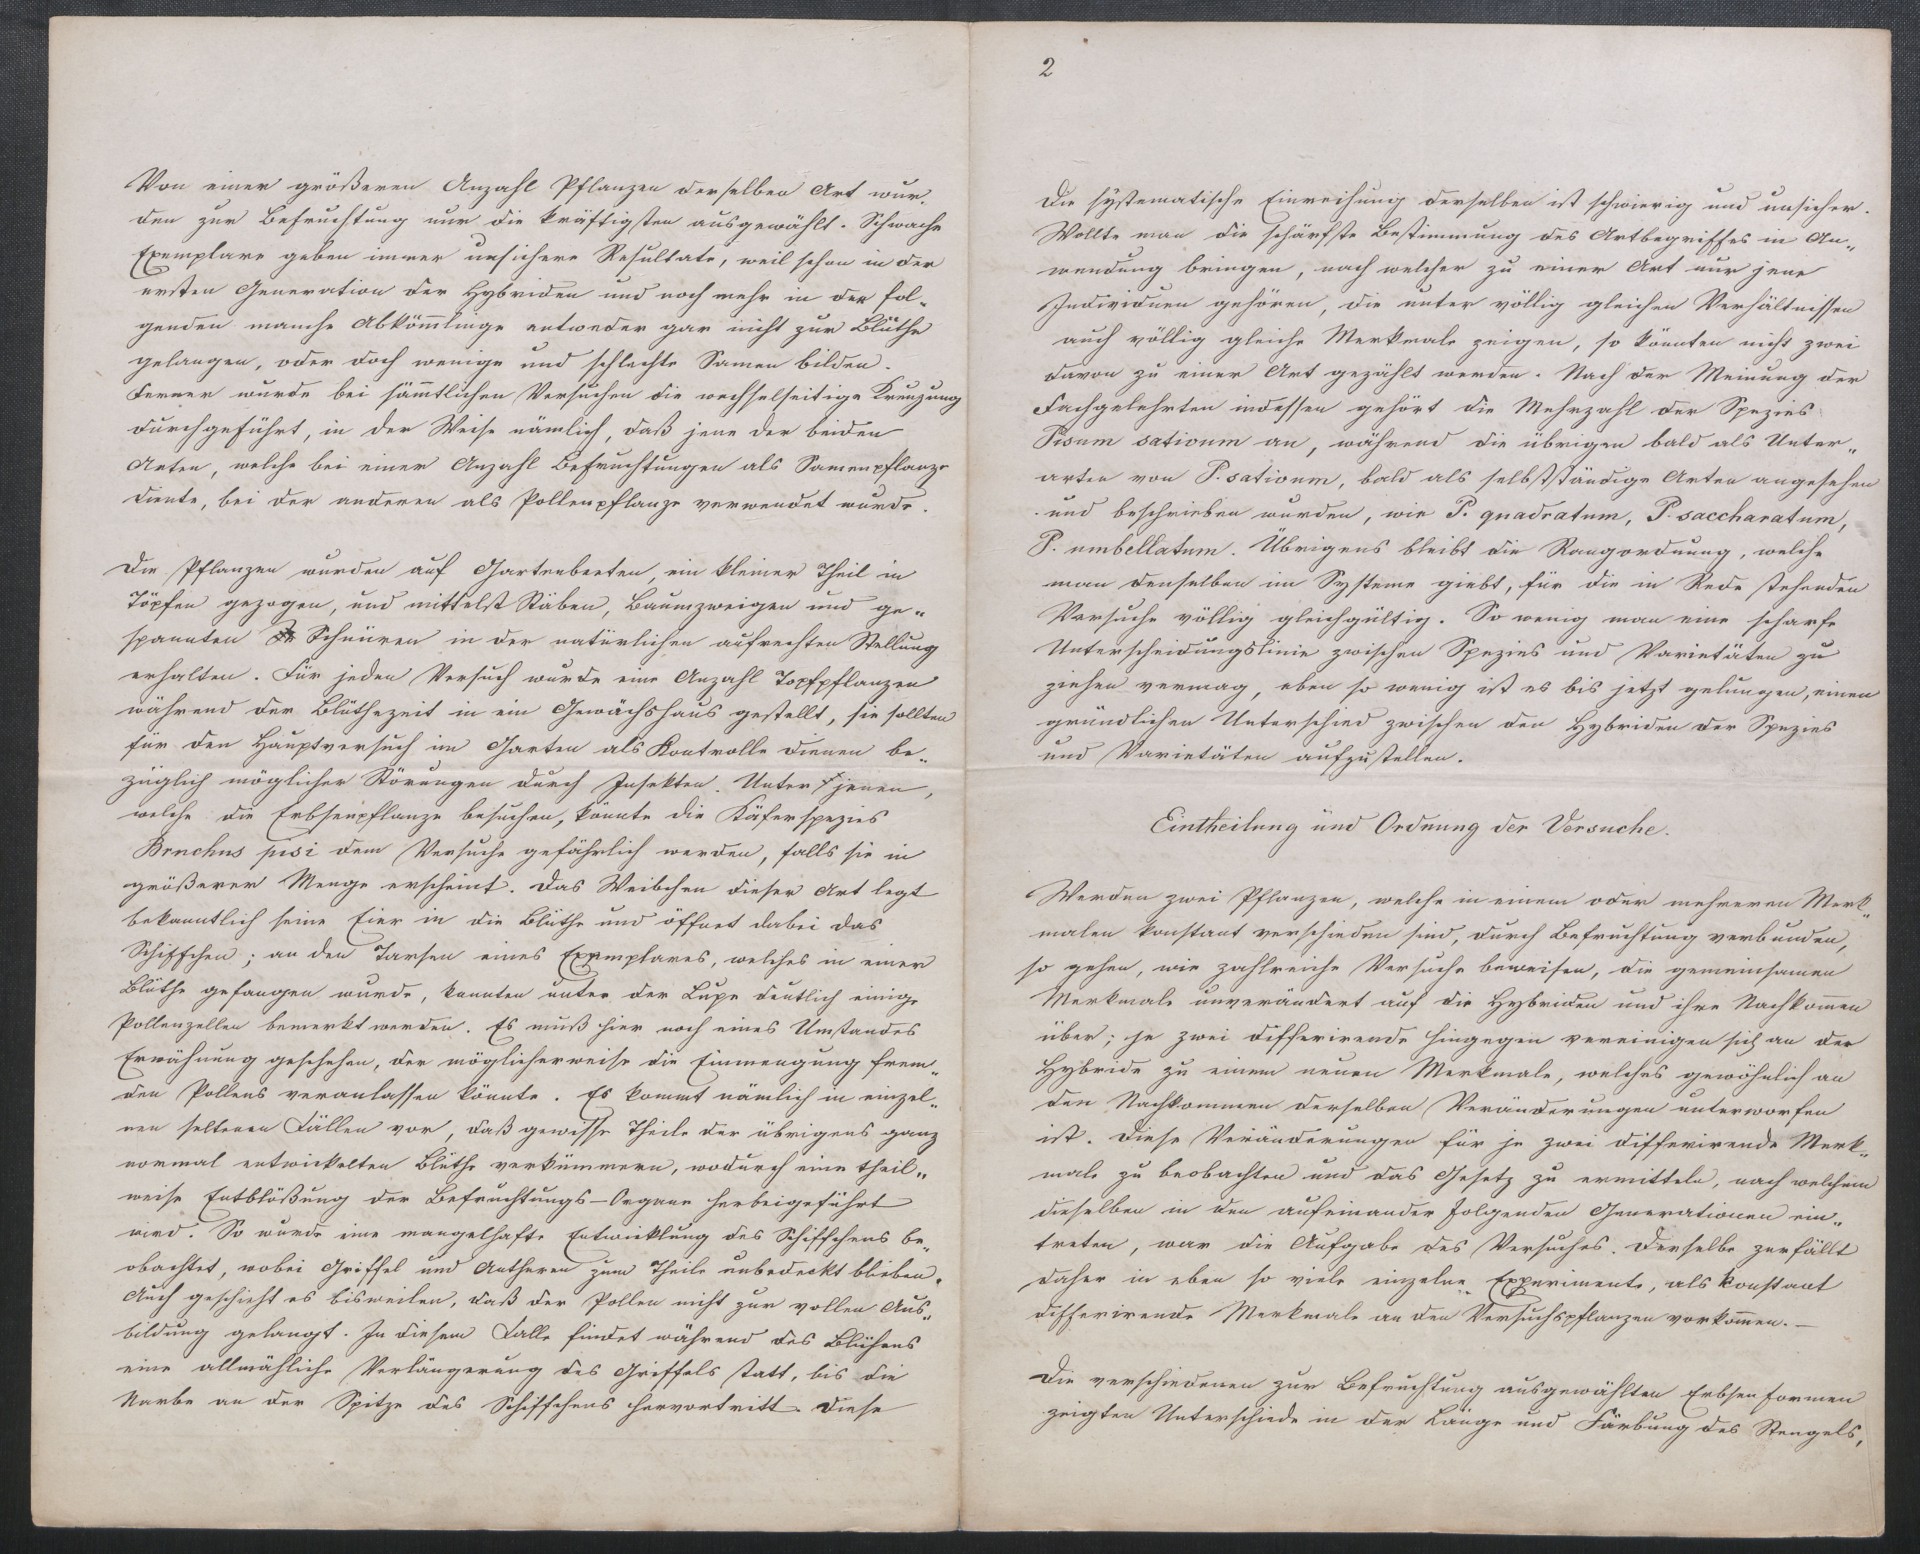 Von einer größeren Anzahl Pflanzen derselben Art wur„
den zur Befruchtung nur die kräftigsten ausgewählt. Schwache
Exemplare geben immer unsichere Resultate, weil schon in der
ersten Generation der Hybriden und noch mehr in der fol„
genden manche Abkömmlinge entweder gar nicht zur Blüthe
gelangen, oder doch wenige und schlechte Samen bilden.
Ferner wurde bei sämmtlichen Versuchen die wechselseitige Kreuzung
durchgeführt, in der Weise nämlich, daß jene der beiden
Arten, welche bei einer Anzahl Befruchtungen als Samenpflanze
diente, bei der anderen als Pollenpflanze verwendet wurde.
Die Pflanzen wurden auf Gartenbeeten, ein kleiner Theil in
Töpfen gezogen, und mittelst Stäben, Baumzweigen und ge„
spannten Schnüren in der natürlichen aufrechten Stellung
erhalten. Für jeden Versuch wurde eine Anzahl Topfpflanzen
während der Blüthezeit in ein Gewächshaus gestellt, sie sollten
für den Hauptversuch im Garten als Kontrolle dienen be„
züglich möglicher Störungen durch Insekten. Unter jenen,
welche die Erbsenpflanze besuchen, könnte die Käferspezies
Bruchus pisi dem Versuche gefährlich werden, falls sie in
größerer Menge erscheint. Das Weibchen dieser Art legt
bekanntlich seine Eier in die Blüthe und öffnet dabei das
Schiffchen; an den Tarsen eines Exemplares, welches in einer
Blüthe gefangen wurde, konnten unter der Lupe deutlich einige
Pollenzellen bemerkt werden. Es muß hier noch eines Umstandes
Erwähnung geschehen, der möglicherweise die Einmengung frem„
den Pollens veranlassen könnte. Es kommt nämlich in einzel„
nen seltenen Fällen vor, daß gewisse Theile der übrigens ganz
normal entwickelten Blüthe verkümmern, wodurch eine theil„
weise Entblößung der Befruchtungs-Organe herbeigeführt
wird. So wurde eine mangelhafte Entwicklung des Schiffchens be„
obachtet, wobei Griffel und Antheren zum Theile unbedeckt blieben.
Auch geschieht es bisweilen, daß der Pollen nicht zur vollen Aus„
bildung gelangt. In diesem Falle findet während des Blühens
eine allmähliche Verlängerung des Griffels statt, bis die
Narbe an der Spitze des Schiffchens hervortritt. Diese
2
Die systematische Einreihung derselben ist schwierig und unsicher.
Wollte man die schärfste Bestimmung des Artbegriffes in An„
wendung bringen, nach welcher zu einer Art nur jene
Individuen gehören, die unter völlig gleichen Verhältnissen
auch völlig gleiche Merkmale zeigen, so könnten nicht zwei
davon zu einer Art gezählt werden. Nach der Meinung der
Fachgelehrten indessen gehört die Mehrzahl der Spezies
Pisum sativum an, während die übrigen bald als Unter„
arten von P. sativum, bald als selbstständige Arten angesehen
und beschrieben wurden, wie P. quadratum, P. saccharatum,
P. umbellatum. Übrigens bleibt die Rangordnung, welche
man denselben im Systeme giebt, für die in Rede stehenden
Versuche völlig gleichgültig. So wenig man eine scharfe
Unterscheidungslinie zwischen Spezies und Varietäten zu
ziehen vermag, eben so wenig ist es bis jetzt gelungen, einen
gründlichen Unterschied zwischen den Hybriden der Spezies
und Varietäten aufzustellen.
Eintheilung und Ordnung der Versuche.
Werden zwei Pflanzen, welche in einem oder mehreren Merk„
malen konstant verschieden sind, durch Befruchtung verbunden,
so gehen, wie zahlreiche Versuche beweisen, die gemeinsamen
Merkmale unverändert auf die Hybriden und ihre Nachkommen
über; je zwei differirende hingegen vereinigen sich an der
Hybride zu einem neuen Merkmale, welches gewöhnlich an
den Nachkommen derselben Veränderungen unterworfen
ist. Diese Veränderungen für je zwei differirende Merk„
male zu beobachten und das Gesetz zu ermitteln, nach welchem
dieselben in den aufeinander folgenden Generationen ein„
treten, war die Aufgabe des Versuches. Derselbe zerfällt
daher in eben so viele einzelne Experimente, als konstant
differirende Merkmale an den Versuchspflanzen vorkommen. —
Die verschiedenen zur Befruchtung ausgewählten Erbsenformen
zeigten Unterschiede in der Länge und Färbung des Stengels,